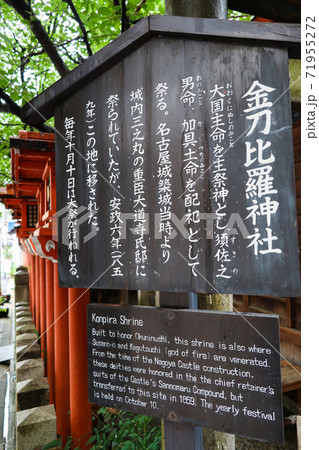 金刀比羅神社
大国主命を主祭神とし須佐之
おおくにぬしのみこと
すさの
男命、加具土命を配祀して
おのみこと
かぐつちのみこと
祭る。名古屋城築城当時より
城内三之丸の重臣大道寺氏邸に
祭られていたが、安政六年(一八五
九年)この地に移された。
毎年十月十日は大祭が行われる。
Konpira Shrine
Built to honor Okuninushi, this shrine is also where
Susano-o and Kagutsuchi (god of fire) are venerated.
From the time of the Nagoya Castle construction,
these deities were honored in the the chief retainer's
suits of the Castle's Sannomaru Compound, but
transferred to this site in 1859. The yearly festival
is held on October 10.
pixta.jp - 71955272